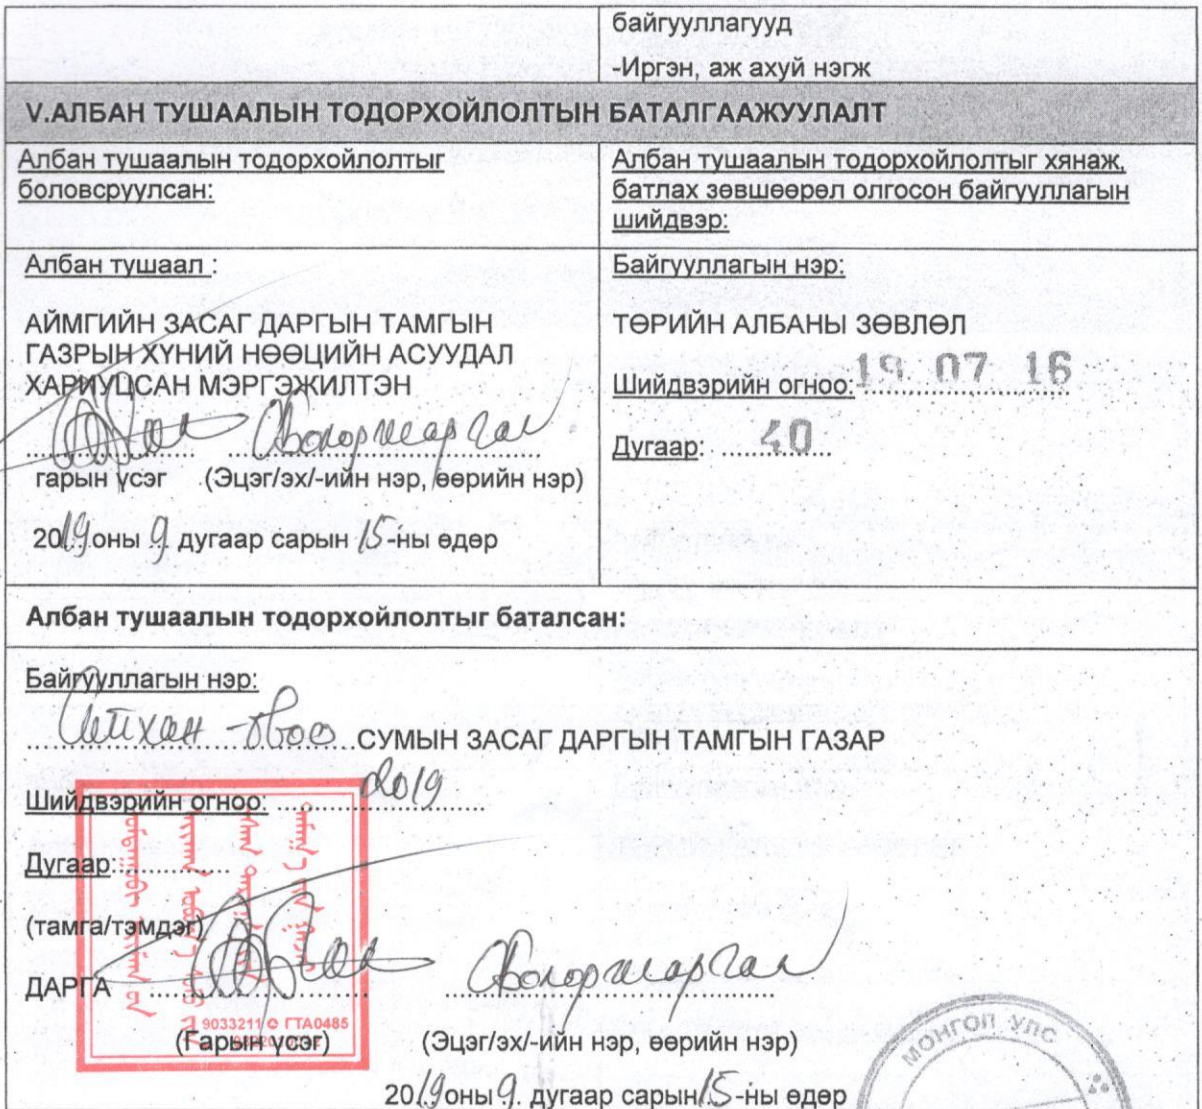 байгууллагууд
-Иргэн, аж ахуй нэгж
V.АЛБАН ТУШААЛЫН ТОДОРХОЙЛОЛТЫН БАТАЛГААЖУУЛАЛТ
Албан тушаалын тодорхойлолтыг
боловсруулсан:
Албан тушаалын тодорхойлолтыг хянаж,
батлах зөвшөөрөл олгосон байгууллагын
шийдвэр:
Албан тушаал :
АЙМГИЙН ЗАСАГ ДАРГЫН ТАМГЫН
ГАЗРЫН ХҮНИЙ НӨӨЦИЙН АСУУДАЛ
ХАРИУЦСАН МЭРГЭЖИЛТЭН
гарын үсэг (Эцэг/эх/-ийн нэр, өөрийн нэр)
2019 оны 9 дугаар сарын 15-ны өдөр
Байгууллагын нэр:
ТӨРИЙН АЛБАНЫ ЗӨВЛӨЛ
Шийдвэрийн огноо: 19 07 16
Дугаар: 40
Албан тушаалын тодорхойлолтыг баталсан:
Байгууллагын нэр:
СУМЫН ЗАСАГ ДАРГЫН ТАМГЫН ГАЗАР
Шийдвэрийн огноо: 2019
Дугаар:
(тамга/тэмдэг)
ДАРГА
9033211 ГТА0485
(Гарын үсэг) (Эцэг/эх/-ийн нэр, өөрийн нэр)
2019 оны 9. дугаар сарын 15-ны өдөр
МОНГОЛ УЛС